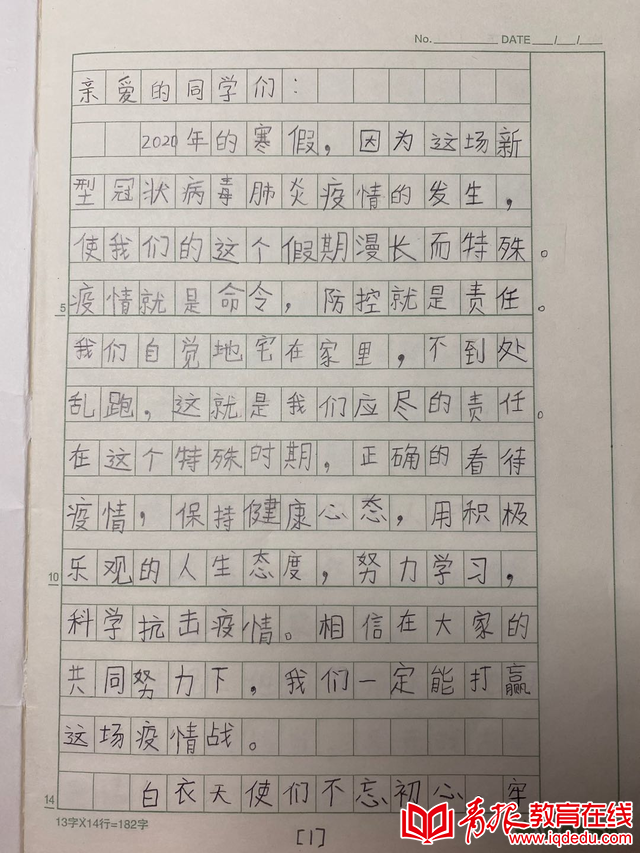 No. DATE / /
亲爱的同学们:
2020年的寒假,因为这场新
型冠状病毒肺炎疫情的发生,
使我们的这个假期漫长而特殊。
5
疫情就是命令,防控就是责任。
我们自觉地宅在家里,不到处
乱跑,这就是我们应尽的责任。
在这个特殊时期,正确的看待
疫情,保持健康心态,用积极
10
乐观的人生态度,努力学习,
科学抗击疫情。相信在大家的
共同努力下,我们一定能打赢
这场疫情战。
14
白衣天使们不忘初心 牢
13字X14行=182字
[1]
青报教育在线
www.iqdedu.com